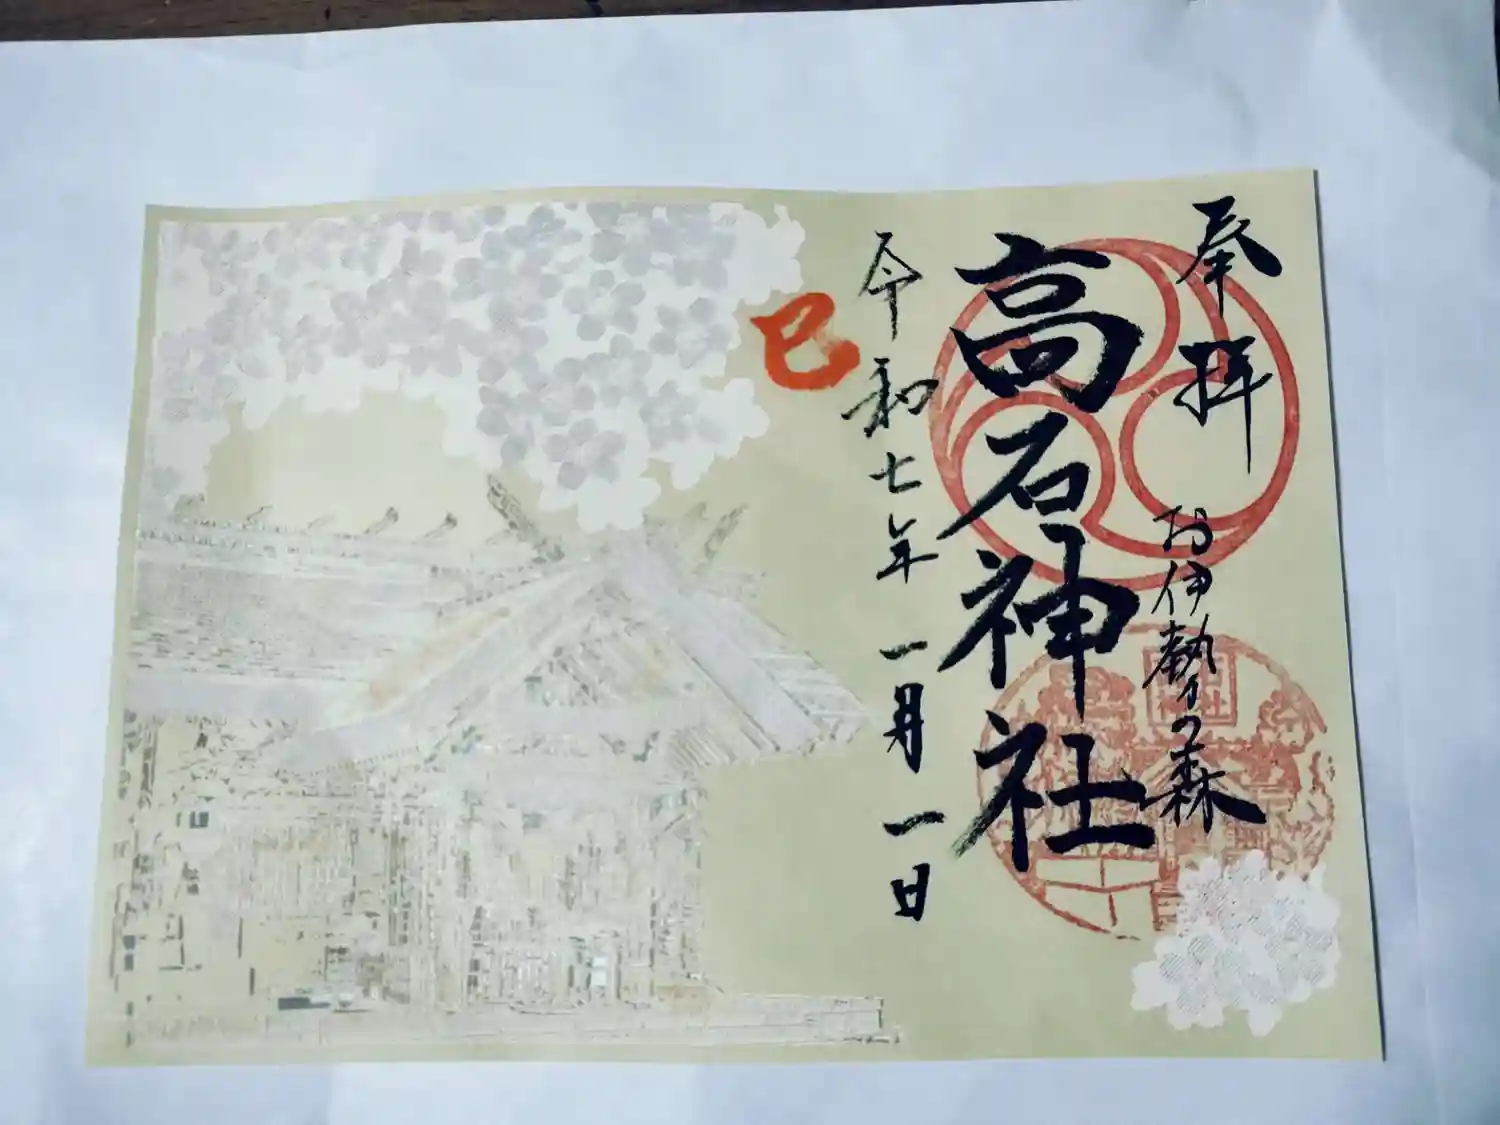 奉拝
お伊勢の森
高石神社
令和七年一月一日
巳